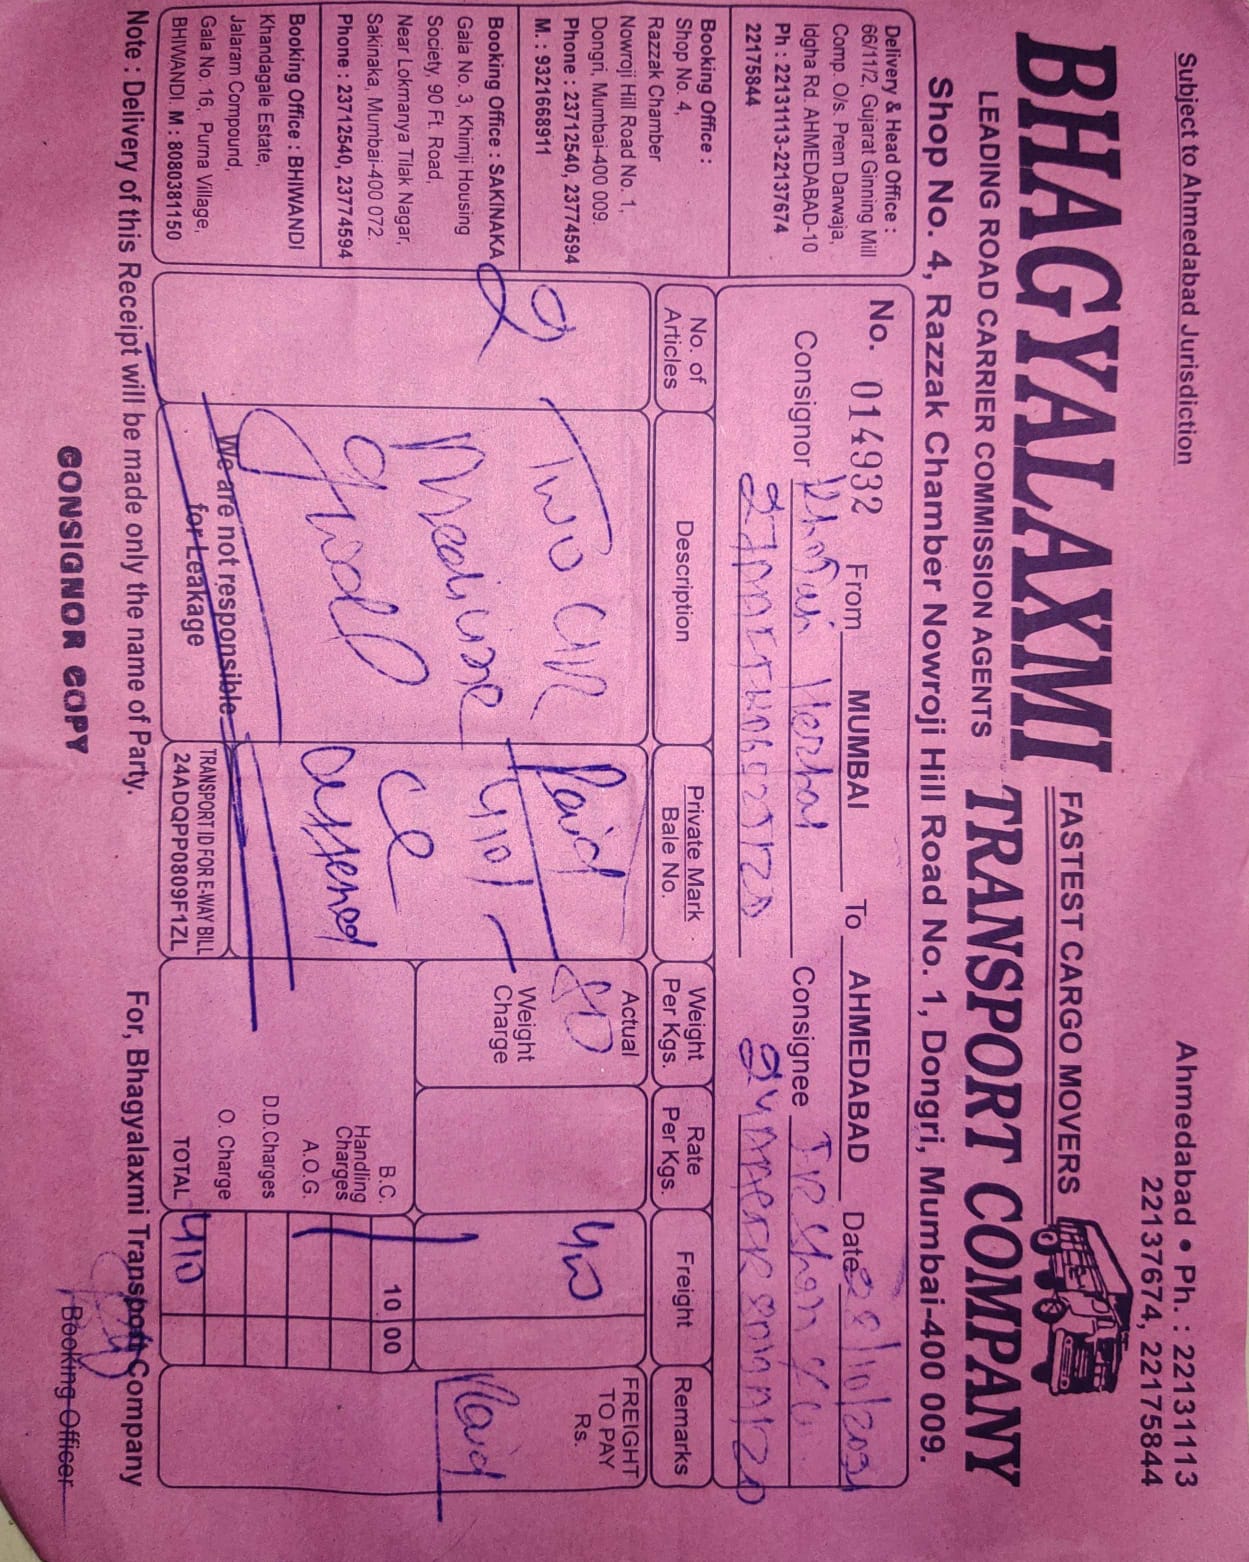 Subject to Ahmedabad Jurisdiction
Ahmedabad • Ph. : 22131113
22137674, 22175844
BHAGYALAXMI
FASTEST CARGO MOVERS
TRANSPORT COMPANY
LEADING ROAD CARRIER COMMISSION AGENTS
Shop No. 4, Razzak Chamber Nowroji Hill Road No. 1, Dongri, Mumbai-400 009.
Delivery & Head Office :
66/11/2, Gujarat Ginning Mill
Comp. O/s. Prem Darwaja,
Idgha Rd. AHMEDABAD-10
Ph : 22131113-22137674
22175844
Booking Office :
Shop No. 4,
Razzak Chamber
Nowroji Hill Road No. 1,
Dongri, Mumbai-400 009.
Phone : 23712540, 23774594
M. : 9321668911
Booking Office : SAKINAKA
Gala No. 3, Khimji Housing
Society, 90 Ft. Road,
Near Lokmanya Tilak Nagar,
Sakinaka, Mumbai-400 072.
Phone : 23712540, 23774594
Booking Office : BHIWANDI
Khandagale Estate,
Jalaram Compound,
Gala No. 16, Purna Village,
BHIVANDI. M : 8080381150
No. 014932 From MUMBAI To AHMEDABAD Date
Consignor
Consignee
No. of Articles
Description
Private Mark
Bale No.
Weight Per Kgs.
Rate Per Kgs.
Freight
Remarks
2
Two
Medicine
Good
Paid
410/-
Actual
80
Weight Charge
FREIGHT TO PAY Rs.
Paid
B.C. 10 00
Handling Charges
A.O.G.
D.D.Charges
O. Charge
TOTAL 410
We are not responsible
for Leakage
TRANSPORT ID FOR E-WAY BILL
24ADQPP0809F1ZL
Note : Delivery of this Receipt will be made only the name of Party.
For, Bhagyalaxmi Transport Company
CONSIGNOR COPY
Booking Officer